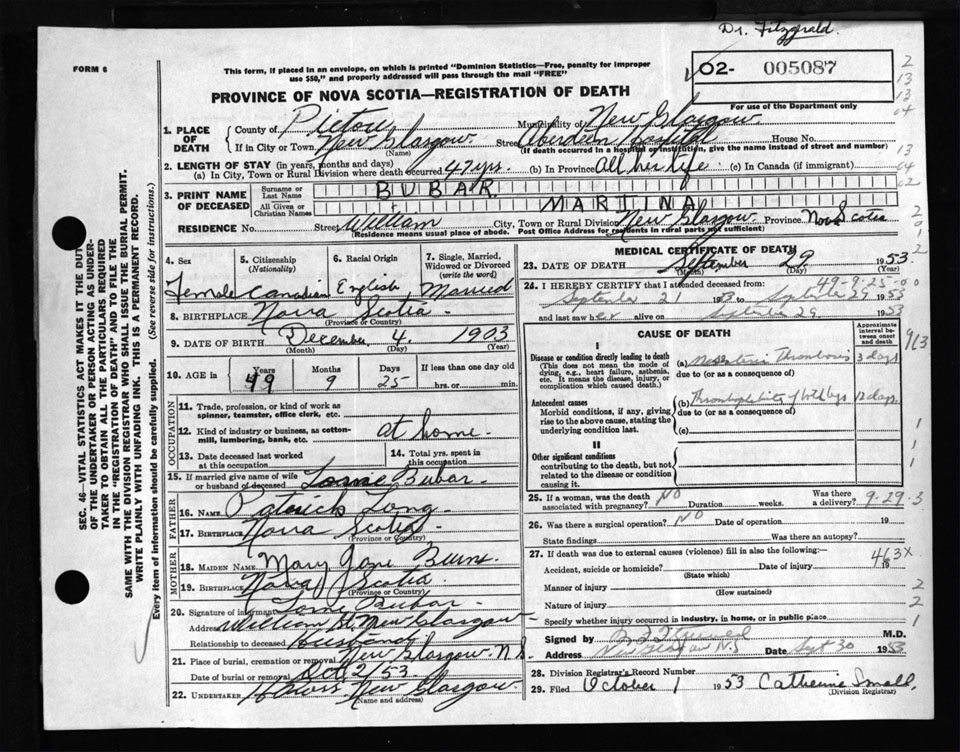 Dr. Fitzgerald.
FORM 6
This form, if placed in an envelope, on which is printed "Dominion Statistics—Free, penalty for improper
use $50," and properly addressed will pass through the mail "FREE"
O2- 005087
For use of the Department only
PROVINCE OF NOVA SCOTIA—REGISTRATION OF DEATH
1. PLACE OF DEATH County of Pictou Municipality of New Glasgow.
If in City or Town New Glasgow. (Name) Street Aberdeen Hospital House No.
(If death occurred in a hospital or institution, give the name instead of street and number)
2. LENGTH OF STAY (in years, months and days)
(a) In City, Town or Rural Division where death occurred 47 yrs. (b) In Province All her life. (c) In Canada (if immigrant)
3. PRINT NAME OF DECEASED Surname or Last Name BUBAR.
All Given or Christian Names MARTINA
RESIDENCE No. Street William City, Town or Rural Division New Glasgow Province Nova Scotia
(Residence means usual place of abode. Post Office Address for residents in rural parts not sufficient)
4. Sex 5. Citizenship (Nationality) 6. Racial Origin 7. Single, Married, Widowed or Divorced (write the word)
Female Canadian English Married
8. BIRTHPLACE Nova Scotia (Province or Country)
9. DATE OF BIRTH December 4. 1903
(Month) (Day) (Year)
10. AGE Years Months Days If less than one day old
49 9 25 hrs. or min.
OCCUPATION
11. Trade, profession, or kind of work as spinner, teamster, office clerk, etc.
12. Kind of industry or business, as cotton-mill, lumbering, bank, etc. at home.
13. Date deceased last worked at this occupation 14. Total yrs. spent in this occupation
15. If married give name of wife or husband of deceased Lorne Bubar.
FATHER
16. NAME Patrick Long.
17. BIRTHPLACE Nova Scotia (Province or Country)
MOTHER
18. MAIDEN NAME Mary Jane
19. BIRTHPLACE Nova Scotia (Province or Country)
20. Signature of informant Lorne Bubar
Address William St. New Glasgow
Relationship to deceased Husband
21. Place of burial, cremation or removal New Glasgow. N.S.
Date of burial or removal Oct. 2/53.
22. UNDERTAKER New Glasgow.
(Name and address)
MEDICAL CERTIFICATE OF DEATH
23. DATE OF DEATH September 29 1953
(Month) (Day) (Year)
49-9-25-00
24. I HEREBY CERTIFY that I attended deceased from:
September 21 1953 to Sept 29 1953
and last saw her alive on September 29 1953
CAUSE OF DEATH
Approximate interval between onset and death
963
I
Disease or condition directly leading to death
(This does not mean the mode of dying, e.g., heart failure, asthenia, etc. It means the disease, injury, or complication which caused death.)
(a) Mesenteric Thrombosis 3 days
due to (or as a consequence of)
Antecedent causes
Morbid conditions, if any, giving rise to the above cause, stating the underlying condition last.
(b) Thrombophlebitis of both legs 12 days
due to (or as a consequence of)
(c)
II
Other significant conditions
contributing to the death, but not related to the disease or condition causing it.
25. If a woman, was the death associated with pregnancy? NO Duration weeks. Was there a delivery?
9-29-3
26. Was there a surgical operation? NO Date of operation 19
State findings Was there an autopsy?
27. If death was due to external causes (violence) fill in also the following: 463X
Accident, suicide or homicide? (State which) Date of injury 19
Manner of injury (How sustained)
Nature of injury
Specify whether injury occurred in industry, in home, or in public place
Signed by M.D.
Address New Glasgow N.S Date Sept 30 1953
28. Division Registrar's Record Number
29. Filed October 1 1953 Catherine Small.
(Division Registrar)
SEC. 46—VITAL STATISTICS ACT MAKES IT THE DUTY
OF THE UNDERTAKER OR PERSON ACTING AS UNDER-
TAKER TO OBTAIN ALL THE PARTICULARS REQUIRED
IN THE "REGISTRATION OF DEATH" AND TO FILE THE
SAME WITH THE DIVISION REGISTRAR WHO SHALL ISSUE THE BURIAL PERMIT.
WRITE PLAINLY WITH UNFADING INK. THIS IS A PERMANENT RECORD.
Every item of information should be carefully supplied. (See reverse side for instructions.)